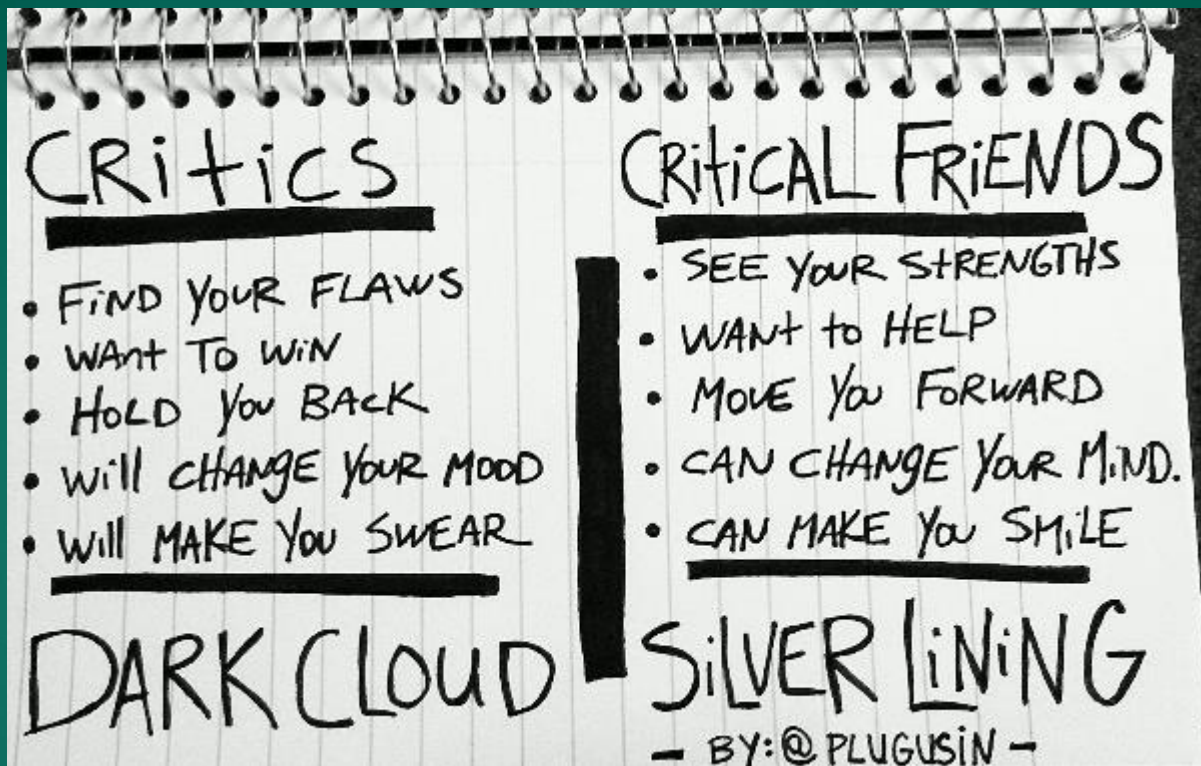 CRitiCS
FiND YOUR FLAWS
WAnt TO WiN
HOLD YOU BACK
Will CHANGE YOUR MOOD
Will MAKE YOU SWEAR
DARK CLOUD
CRitiCAL FRiENDS
SEE YOUR StRENGTHS
WANt to HELP
MOVE YOU FORWARD
CAN CHANGE YOUR MiND.
CAN MAKE YOU SMiLE
SiLVER LiNiNG
- BY: @PLUGUSiN -